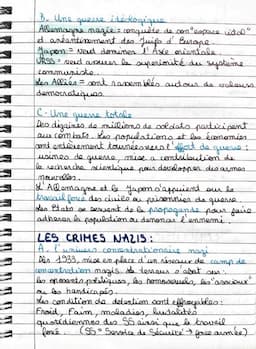 B. Une guerre idéologique
Allemagne nazie : conquête de son "espace vital"
et anéantissement des Juifs d'Europe.
Japon = veut dominer l'Asie orientale
URSS = veut assurer la supériorité du système
communiste.
Les Alliés = sont rassemblés autour de valeurs
démocratiques.
C - Une guerre totale
Des dizaines de millions de soldats participent
aux combats. Les populations et les économies
sont entièrement tournées vers l'effort de guerre :
usines de guerre, mise a contribution de
la recherche scientifique pour développer des armes
nouvelles.
L'Allemagne et le Japon s'appuient sur le
travail forcé des civils ou prisonniers de guerre.
Les Etats se servent de la propagande pour faire
adhérer la population ou dénoncer l'ennemi.
LES CRIMES NAZIS :
A. l'univers concentrationnaire nazi
Dès 1933, mise en place d'un réseau de camp de
concentration nazis. Ils dessus d'abord sur :
les opposants politiques, les homosexuels, les "asociaux"
ou les handicapés.
Les condition de détention sont effroyables :
Froid, Faim, maladies, brutalités
quotidiennes des SS ainsi que le travail
forcé. (SS = Service de Sécurité → force armée)